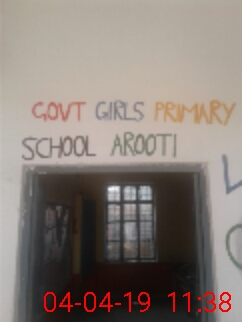 GOVT GIRLS PRIMARY
SCHOOL AROOTI
04-04-19 11:38